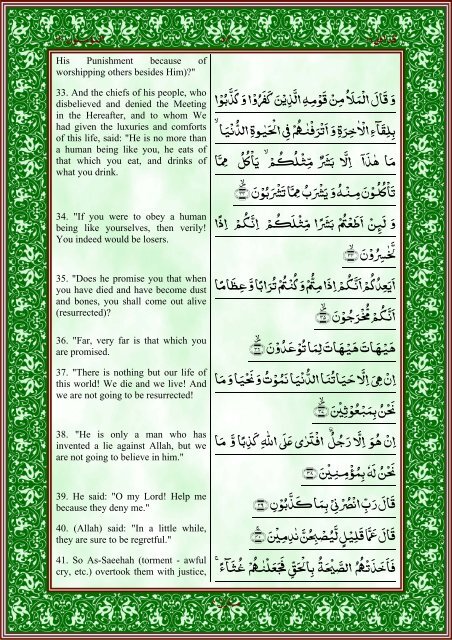 His Punishment because of
worshipping others besides Him)?"
33. And the chiefs of his people, who
disbelieved and denied the Meeting
in the Hereafter, and to whom We
had given the luxuries and comforts
of this life, said: "He is no more than
a human being like you, he eats of
that which you eat, and drinks of
what you drink.
وَ قَالَ الْمَلَاُ مِنْ قَوْمِهِ الَّذِيْنَ كَفَرُوْا وَ كَذَّبُوْا
بِلِقَآءِ الْاٰخِرَةِ وَ اَتْرَفْنٰهُمْ فِي الْحَيٰوةِ الدُّنْيَا ۙ
مَا هٰذَاۤ اِلَّا بَشَرٌ مِّثْلُكُمْ ۙ يَاْكُلُ مِمَّا
تَاْكُلُوْنَ مِنْهُ وَ يَشْرَبُ مِمَّا تَشْرَبُوْنَ ۙ ﴿۳۳﴾
34. "If you were to obey a human
being like yourselves, then verily!
You indeed would be losers.
وَ لَىِٕنْ اَطَعْتُمْ بَشَرًا مِّثْلَكُمْ اِنَّكُمْ اِذًا
لَّخٰسِرُوْنَ ۙ ﴿۳۴﴾
35. "Does he promise you that when
you have died and have become dust
and bones, you shall come out alive
(resurrected)?
اَيَعِدُكُمْ اَنَّكُمْ اِذَا مِتُّمْ وَ كُنْتُمْ تُرَابًا وَّ عِظَامًا
اَنَّكُمْ مُّخْرَجُوْنَ ۙ ﴿۳۵﴾
36. "Far, very far is that which you
are promised.
هَيْهَاتَ هَيْهَاتَ لِمَا تُوْعَدُوْنَ ۙ ﴿۳۶﴾
37. "There is nothing but our life of
this world! We die and we live! And
we are not going to be resurrected!
اِنْ هِيَ اِلَّا حَيَاتُنَا الدُّنْيَا نَمُوْتُ وَ نَحْيَا وَ مَا
نَحْنُ بِمَبْعُوْثِيْنَ ۙ ﴿۳۷﴾
38. "He is only a man who has
invented a lie against Allah, but we
are not going to believe in him."
اِنْ هُوَ اِلَّا رَجُلُ ۨ افْتَرٰى عَلَى اللّٰهِ كَذِبًا وَّ مَا
نَحْنُ لَهٗ بِمُؤْمِنِيْنَ ﴿۳۸﴾
39. He said: "O my Lord! Help me
because they deny me."
قَالَ رَبِّ انْصُرْنِيْ بِمَا كَذَّبُوْنِ ﴿۳۹﴾
40. (Allah) said: "In a little while,
they are sure to be regretful."
قَالَ عَمَّا قَلِيْلٍ لَّيُصْبِحُنَّ نٰدِمِيْنَ ۚ ﴿۴۰﴾
41. So As-Saeehah (torment - awful
cry, etc.) overtook them with justice,
فَاَخَذَتْهُمُ الصَّيْحَةُ بِالْحَقِّ فَجَعَلْنٰهُمْ غُثَآءً ۚ